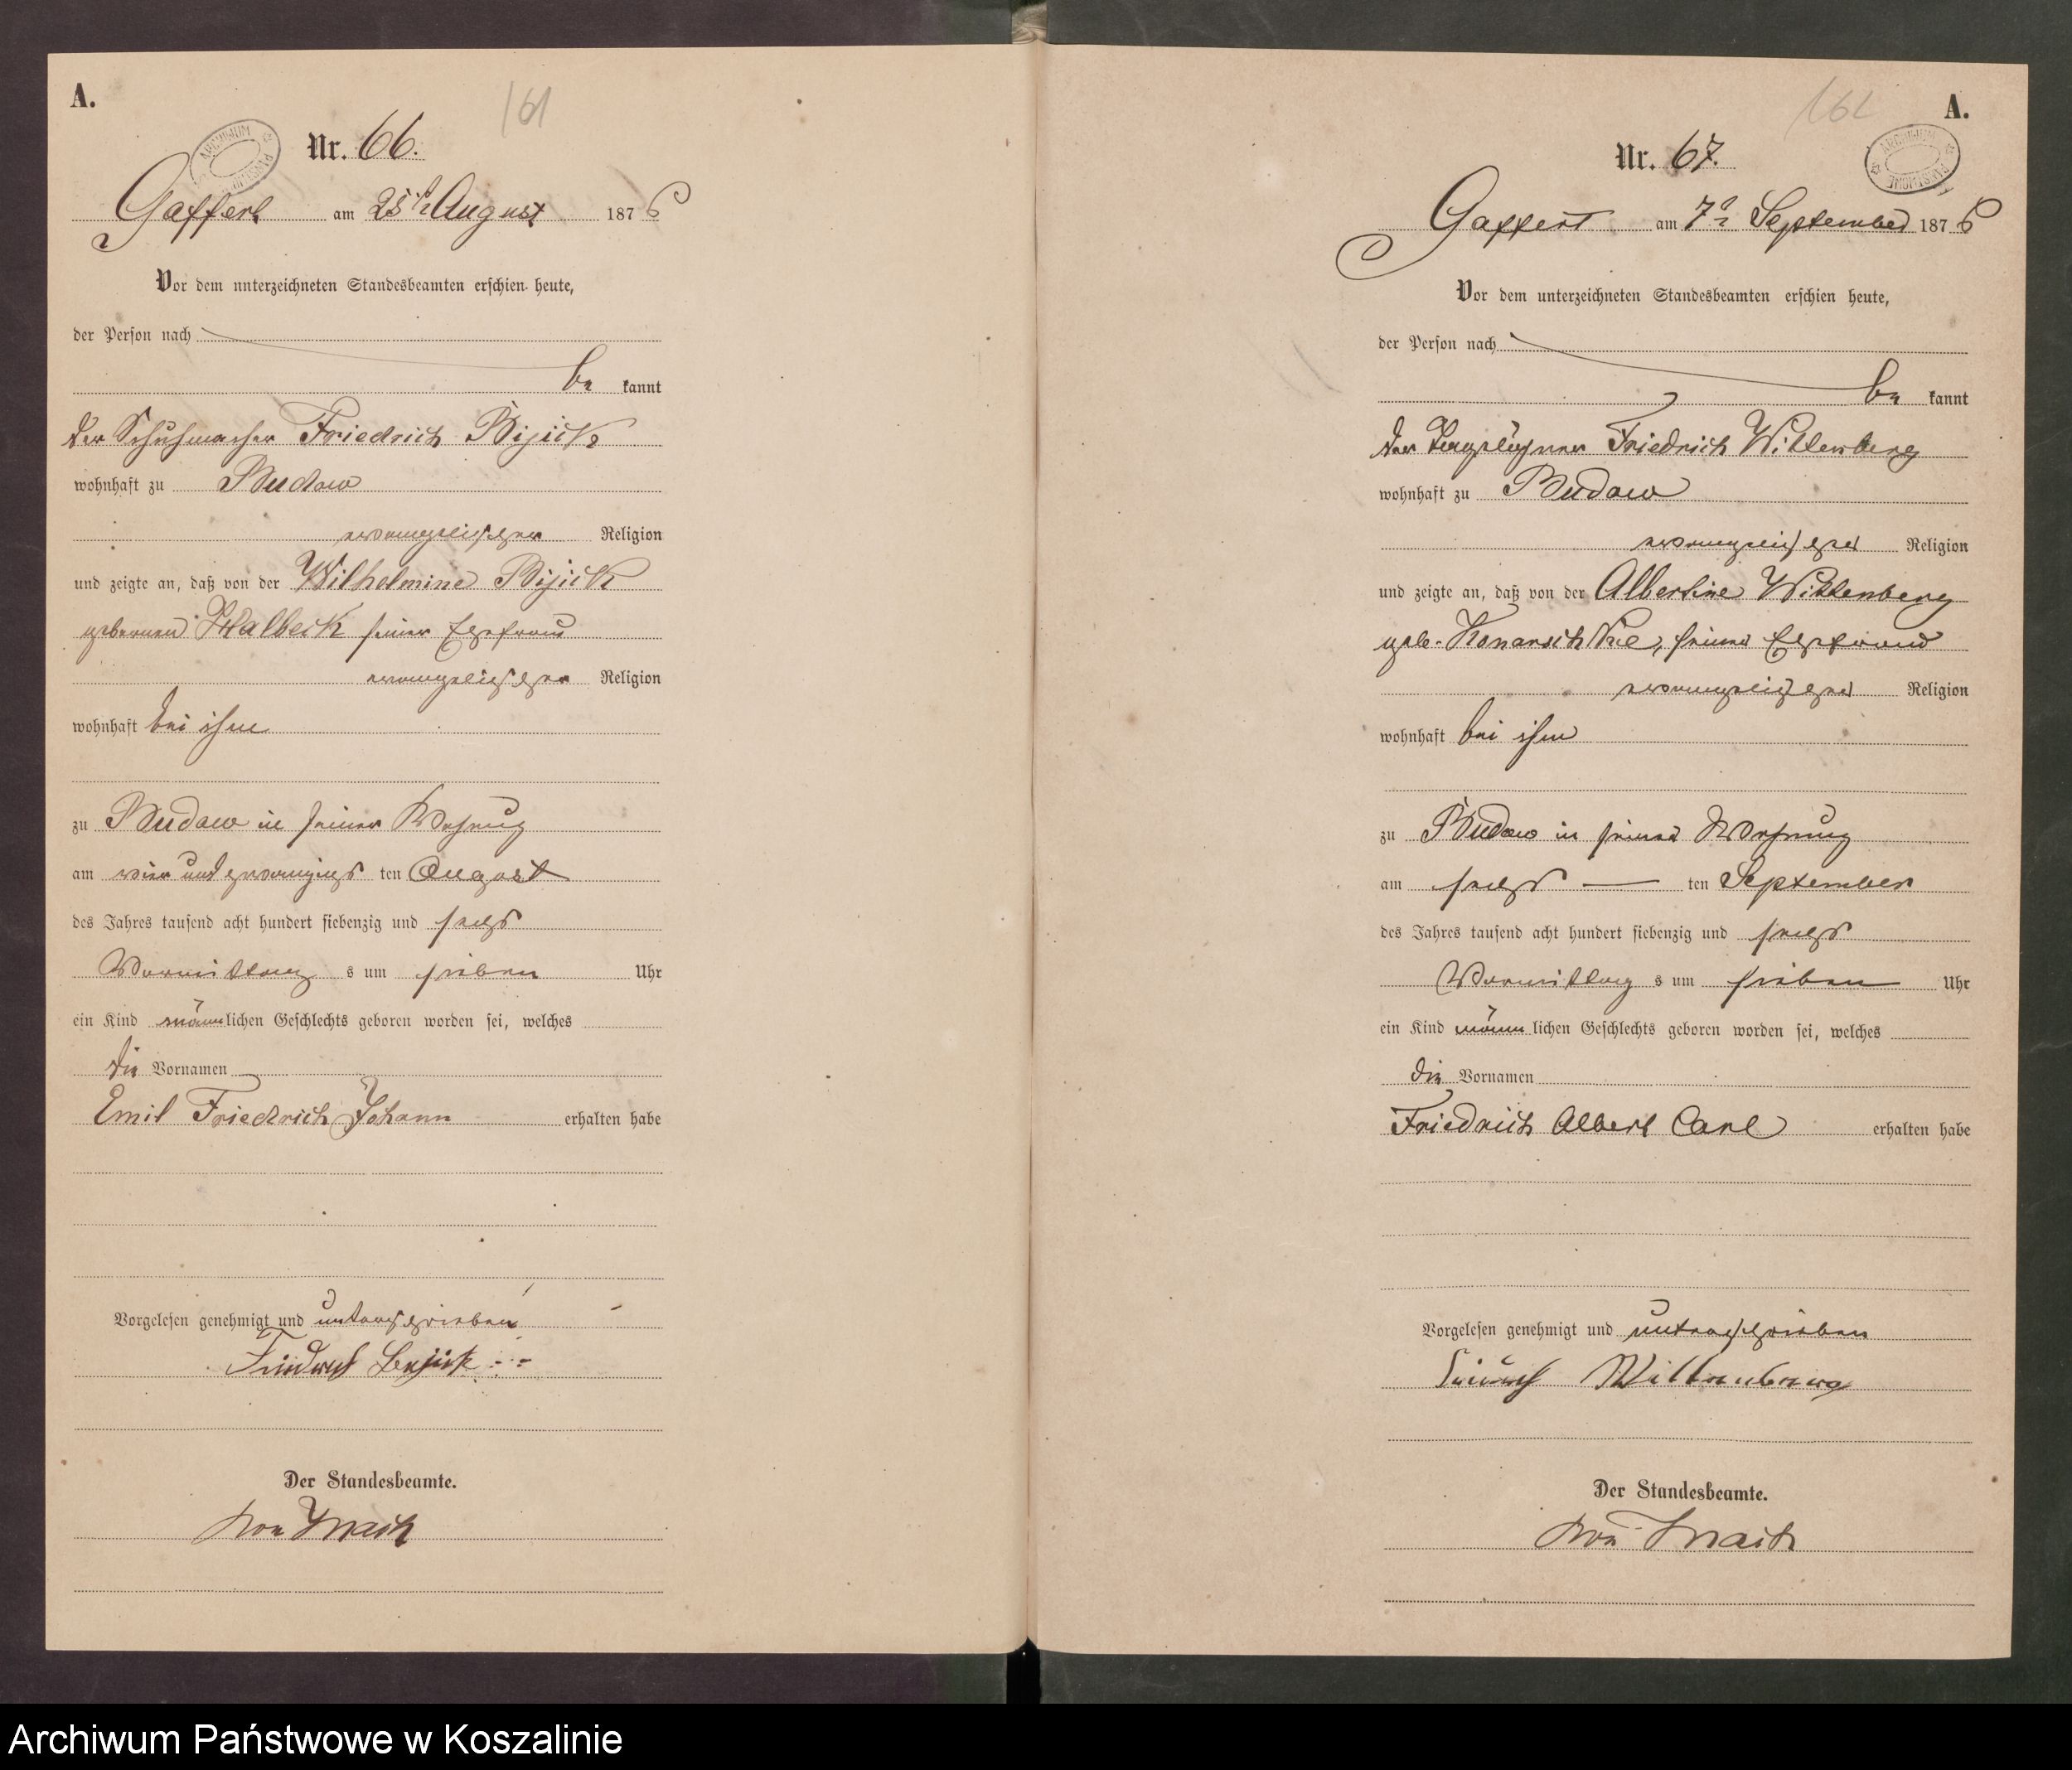 A.
161
Nr. 66.
Gaffert am 25t August 1876
Vor dem unterzeichneten Standesbeamten erschien heute,
der Person nach
be kannt
der Schuhmacher Friedrich Bijick
wohnhaft zu Budow
evangelischer Religion
und zeigte an, daß von der Wilhelmine Bijick
geborenen Halbeck seiner Ehefrau
evangelischer Religion
wohnhaft bei ihm
zu Budow in seiner Wohnung
am vier und zwanzigs ten August
des Jahres tausend acht hundert siebenzig und sechs
Vormittag s um sieben Uhr
ein Kind männlichen Geschlechts geboren worden sei, welches
die Vornamen
Emil Friedrich Johann erhalten habe
Vorgelesen genehmigt und unterschrieben
Friedrich
Der Standesbeamte.
von
162
A.
Nr. 67.
Gaffert am 7t September 1876
Vor dem unterzeichneten Standesbeamten erschien heute,
der Person nach
be kannt
der Tagelöhner Friedrich Wittenberg
wohnhaft zu Budow
evangelischer Religion
und zeigte an, daß von der Albertine Wittenberg
geb. Konarschke, seiner Ehefrau
evangelischer Religion
wohnhaft bei ihm
zu Budow in seiner Wohnung
am sechs — ten September
des Jahres tausend acht hundert siebenzig und sechs
Vormittag s um sieben Uhr
ein Kind männ lichen Geschlechts geboren worden sei, welches
die Vornamen
Friedrich Albert Carl erhalten habe
Vorgelesen genehmigt und unterschrieben
Wittenberg
Der Standesbeamte.
von
Archiwum Państwowe w Koszalinie